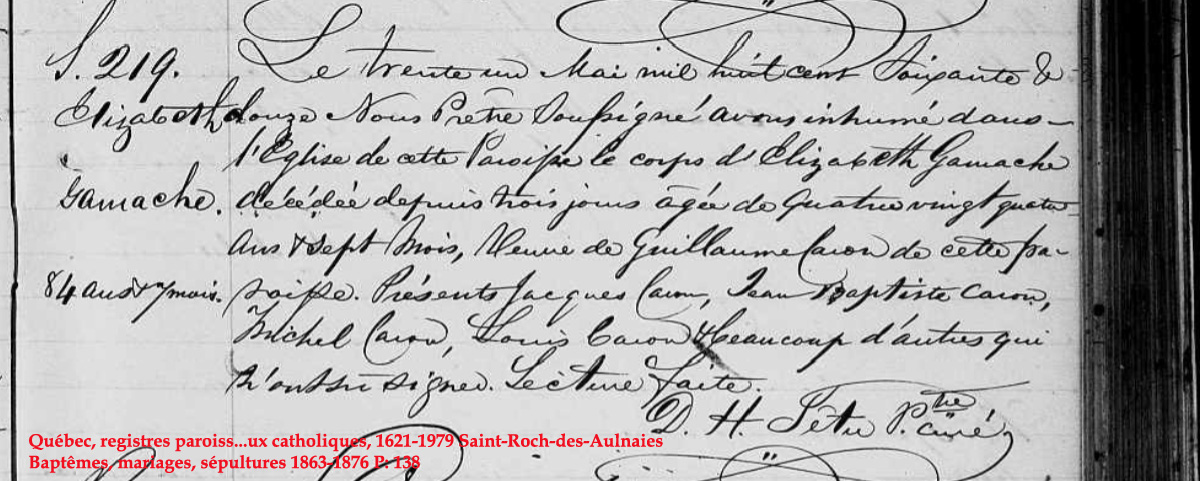 S. 219.
Elizabeth
Gamache.
84 ans & 7 mois.
Le trente un Mai mil huit cent Soixante &
douze Nous Prêtre Soussigné avons inhumé dans
l'Eglise de cette Paroisse le corps d'Elizabeth Gamache
décédée depuis trois jours âgée de Quatre vingt quatre
ans & sept Mois, Veuve de Guillaume Caron de cette pa-
roisse. Présents Jacques Caron, Jean Baptiste Caron,
Michel Caron, Louis Caron & beaucoup d'autres qui
n'ont su signer. Lecture faite.
D. H. Têtu Ptre curé
Québec, registres paroiss...ux catholiques, 1621-1979 Saint-Roch-des-Aulnaies
Baptêmes, mariages, sépultures 1863-1876 P: 138